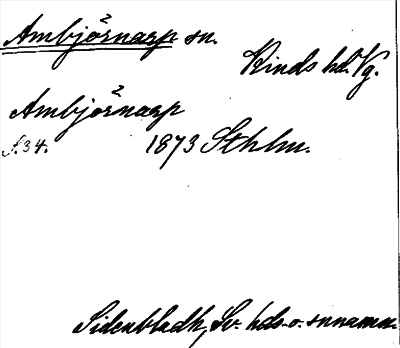 Ambjörnarp sn.
Kinds hd. Vg.
Ambjörnarp
s.34. 1873 Sthlm.
Sidenbladh, Sv. hds- o. snnamn.